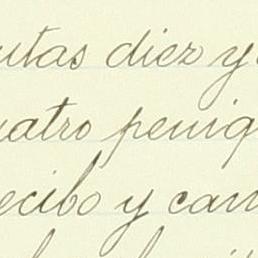 utas diez y
uatro peniq
ecibo y can